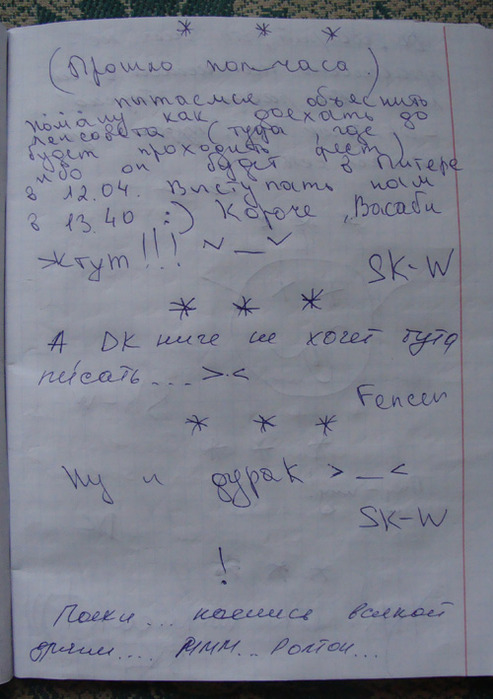 * * *
(Прошло полчаса.)
пытаемся объяснить
Рома́ну как доехать до
Ленсовета (туда, где
будет проходить фест)
ибо он будет в Питере
в 12.04. Выступать нам
в 13.40 :) Короче, Васаби
жгут!!! ~_~
SK-W
* * *
А DK ниче не хочет тута
пи́сать... >.<
Fencer
* * *
Ну и дурак >_<
SK-W
!
всякой
МММ... Ролтон...